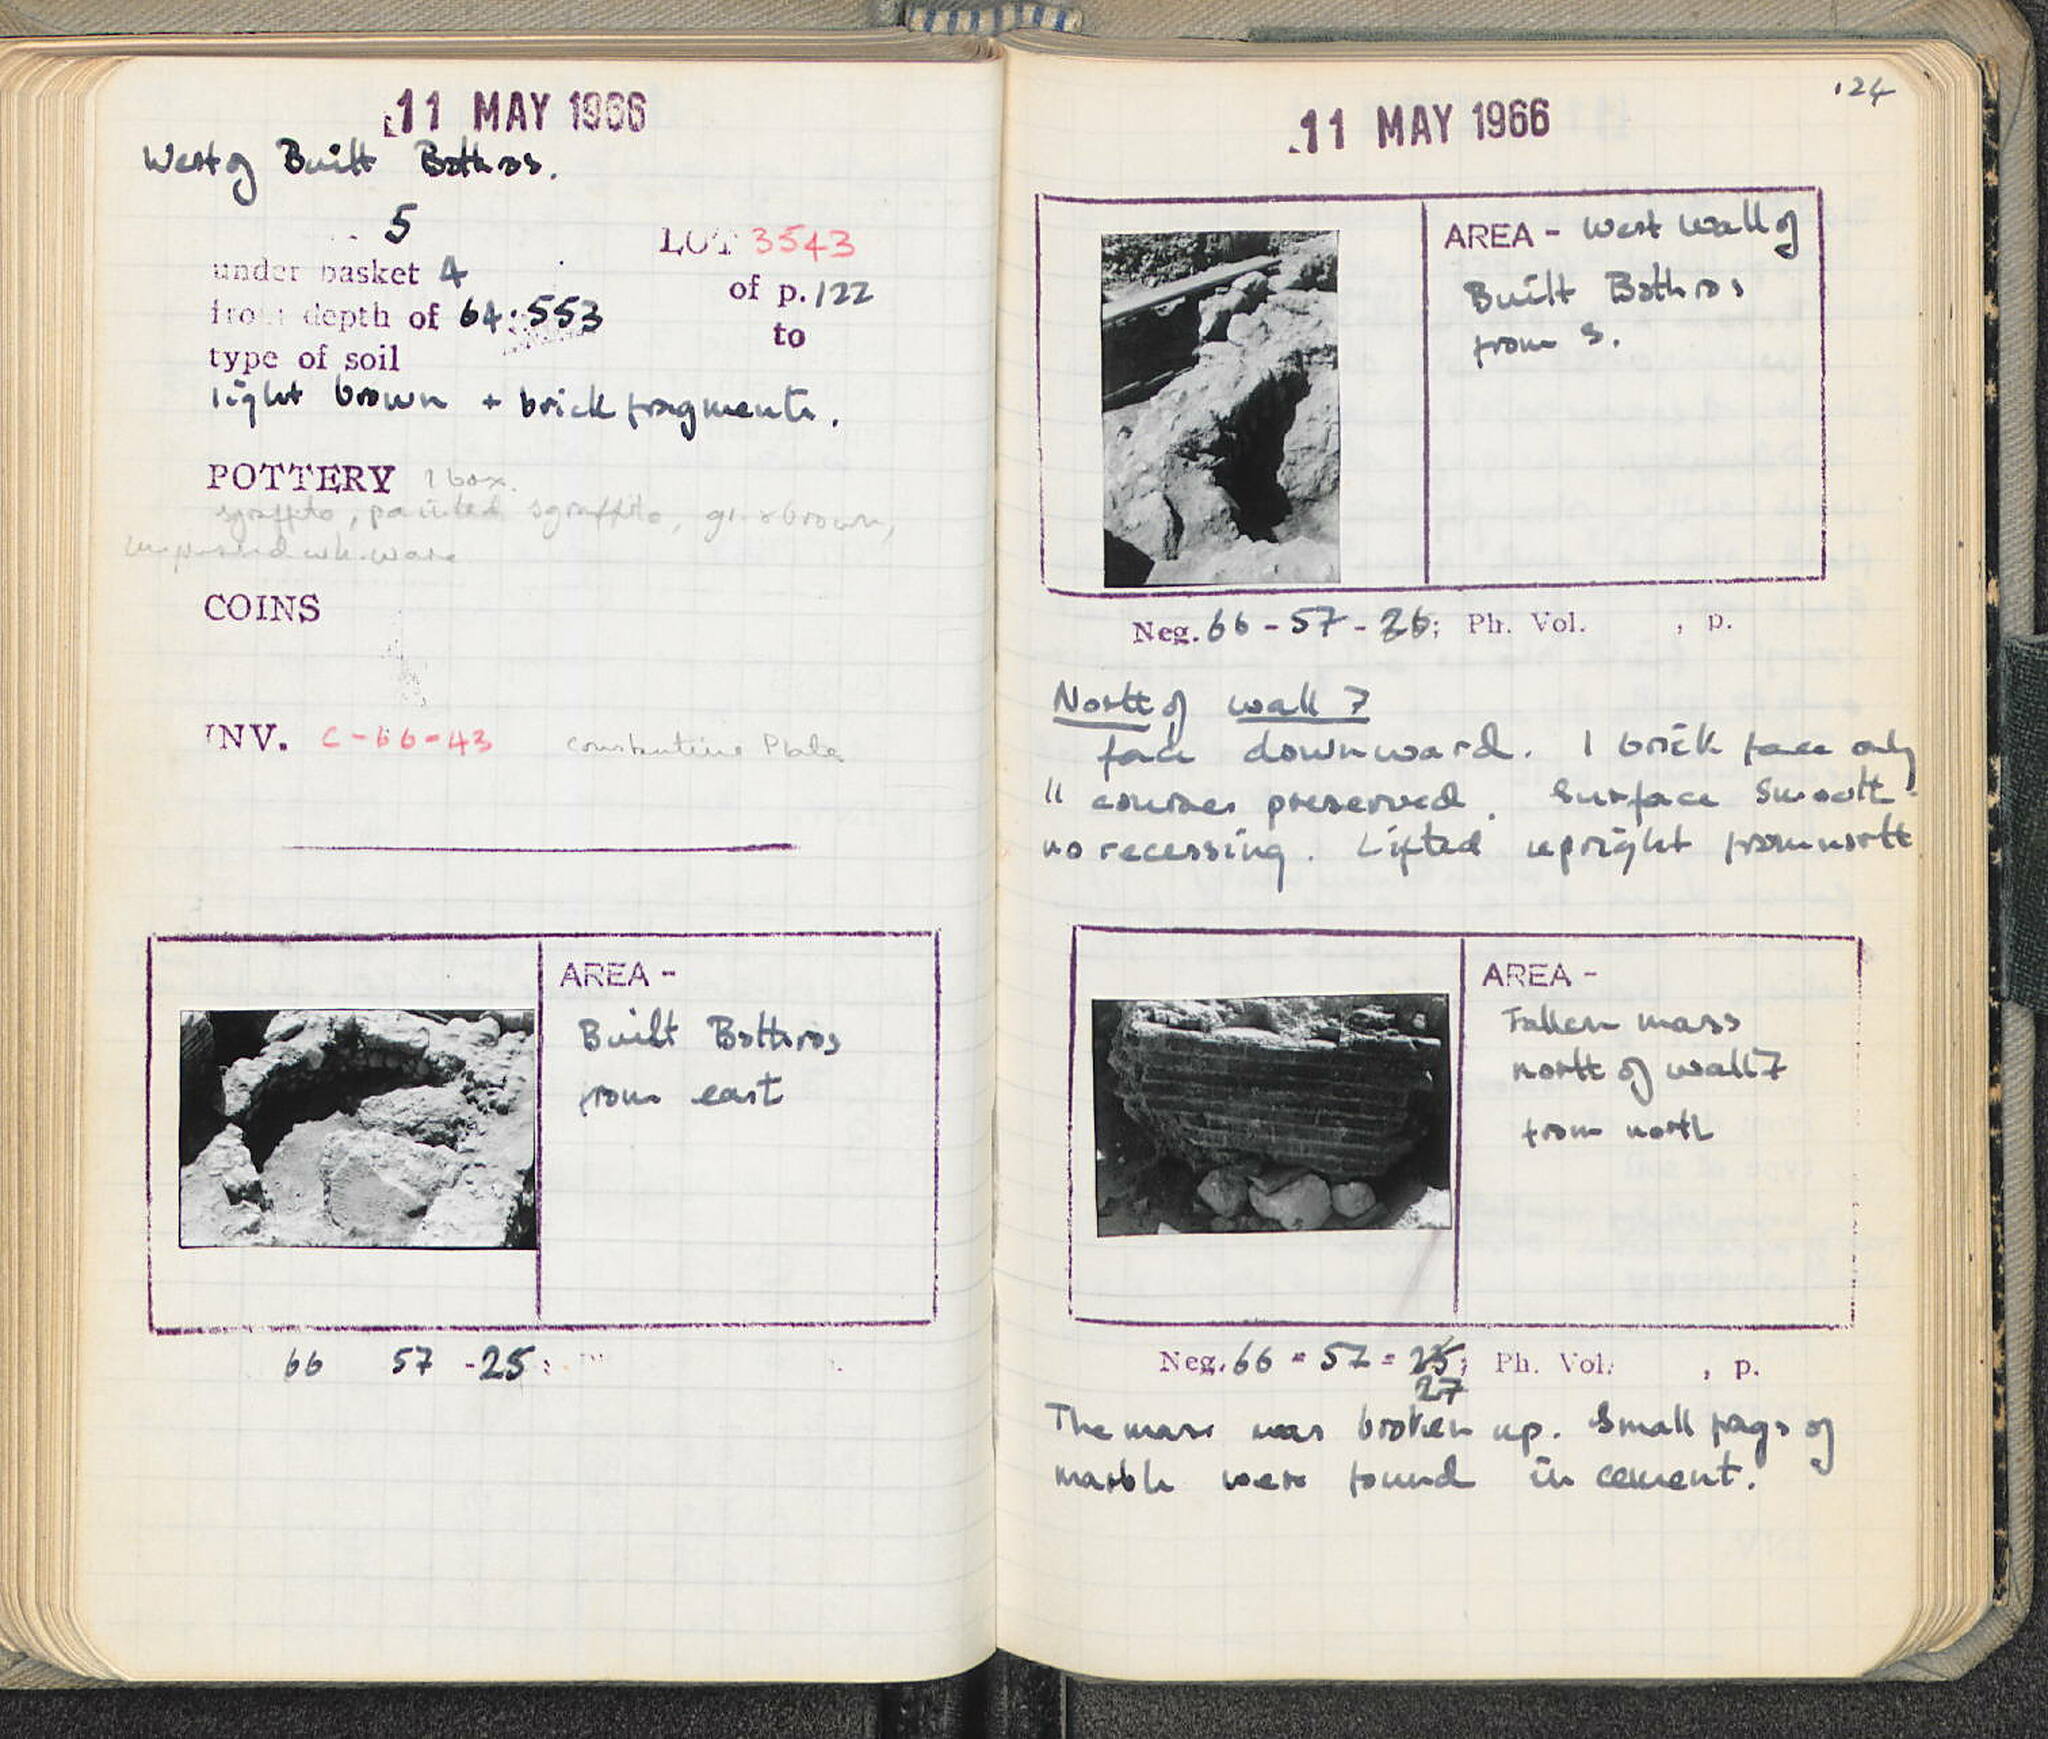 11 MAY 1966
West of Built Bothros.
5
LOT 3543
under basket 4
of p. 122
from depth of 64.553
to
type of soil
light brown + brick fragments.
POTTERY 1 box.
sgraffito, painted sgraffito, gr. & brown,
unpressed wh. ware
COINS
INV. C-66-43 Constantine Plate
AREA -
Built Bothros
from east
66 57 -25;
124
11 MAY 1966
AREA - West Wall of
Built Bothros
from S.
Neg. 66-57-26; Ph. Vol. , p.
North of wall 7
face downward. 1 brick face only
11 courses preserved. Surface smooth -
no recessing. Lifted upright from north
AREA -
Fallen mass
north of wall 7
from north
Neg. 66-57-25; Ph. Vol. , p.
27
The mass was broken up. Small frags of
marble were found in cement.